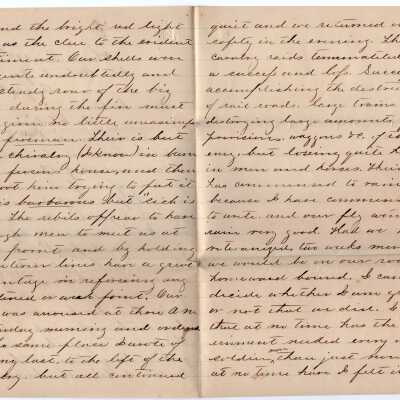 and the bright red light
as the clue to the evident
timent. Our shells were
ents undoubtedly and
steady roar of the big
during the fire must
given no little uneasiness
firemen. Their is but
chivalry (I know) in burn
fireing houses and then
oot him trying to put it
is barbarous but "sich is
The rebils appear to have
ugh men to meet us at
point and by holding
interior lines have a great
ntage in reforcing any
tened or weak point. Our
was aroused at three A.M.
nday morning and ordered
the same place I wrote of
ny last, to the left of the
ery. but all continued
quiet and we returned in
safety in the evening. The
cavalry raids terminated
a success and loss. Succe
accomplishing the destruc
of rail roads. large trains
destroying large amounts
provisions, waggons &c. of t
emy, but loosing quite h
in men and horses. Their
has commenced to rain
because I have commenc
to write and our fly
rain very good. Had we
two weeks more
we would be on our
homeward bound. I can
decide whether I am g
or not that we did.
that at no time has the
ernment needed every
soldier than just now
at no time have I felt it